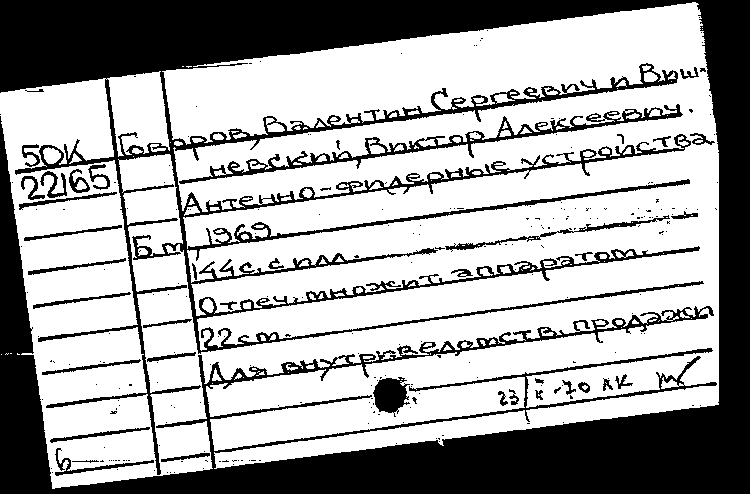 Говоров, Валентин Сергеевич и Виш-
невский, Виктор Алексеевич.
50К
22165
Антенно-фидерные устройства
Б.м., 1969.
144с. с илл.
Отпеч. множит. аппаратом.
22см.
Для внутриведомств. продажи
23/II-70 ЛК
6